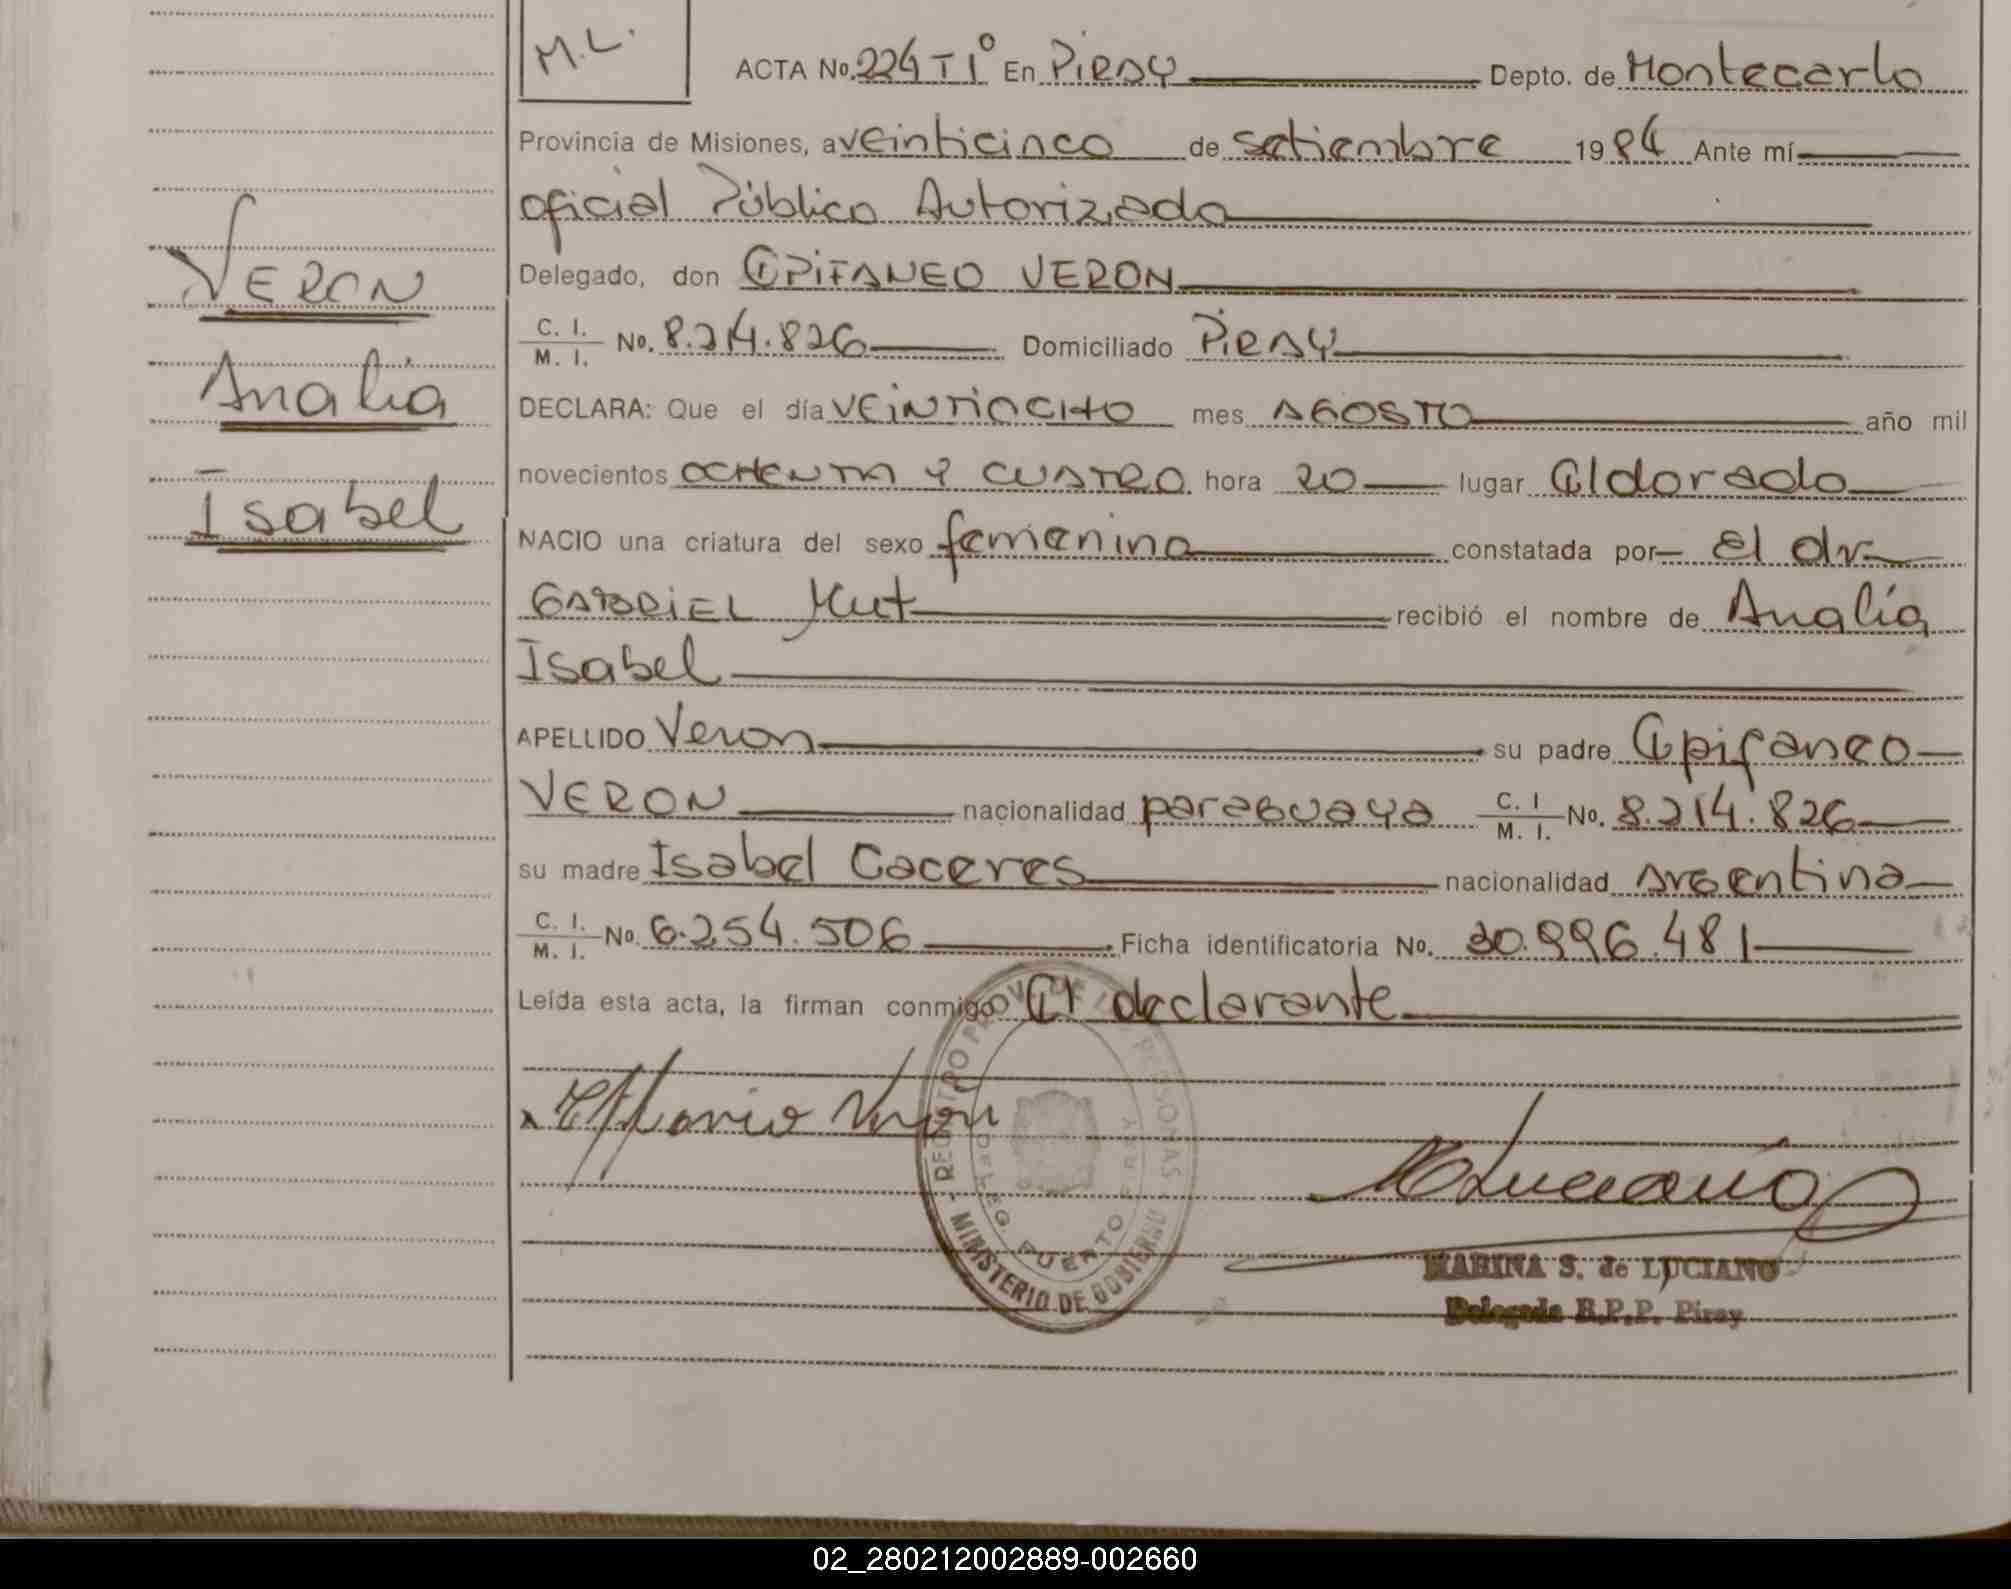 M.L.
ACTA No. 224 T I° En Piray Depto. de Montecarlo
Provincia de Misiones, a veinticinco de setiembre 1984 Ante mí
oficial Público Autorizado
VERON
Delegado, don EPIFANEO VERON
C. I. M. I. No. 8.214.826 Domiciliado Piray
Analia
DECLARA: Que el día VEINTIOCHO mes AGOSTO año mil
novecientos OCHENTA Y CUATRO hora 20 lugar Eldorado
Isabel
NACIO una criatura del sexo femenino constatada por El dr
GABRIEL Mut recibió el nombre de Analía
Isabel
APELLIDO Veron su padre Epifaneo
VERON nacionalidad paraguaya C. I M. I. No. 8.214.826
su madre Isabel Caceres nacionalidad Argentina
C. I. M. I. No. 6.254.506 Ficha identificatoria No. 30.996.481
Leída esta acta, la firman conmigo El declarante
REGISTRO PROV. DE LAS PERSONAS
DELEG. PUERTO PIRAY
MINISTERIO DE GOBIERNO
Luciano
MARINA S. de LUCIANO
Delegada R.P.P. Piray
02_280212002889-002660